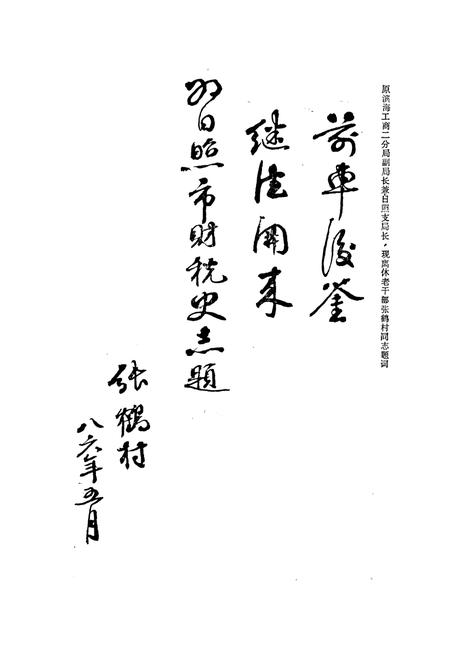 原滨海工商二分局副局长兼日照支局长，现离休老干部张鹤村同志题词
前車後鉴
继往開来
为日照市财税史志題
张鶴村
八六年五月